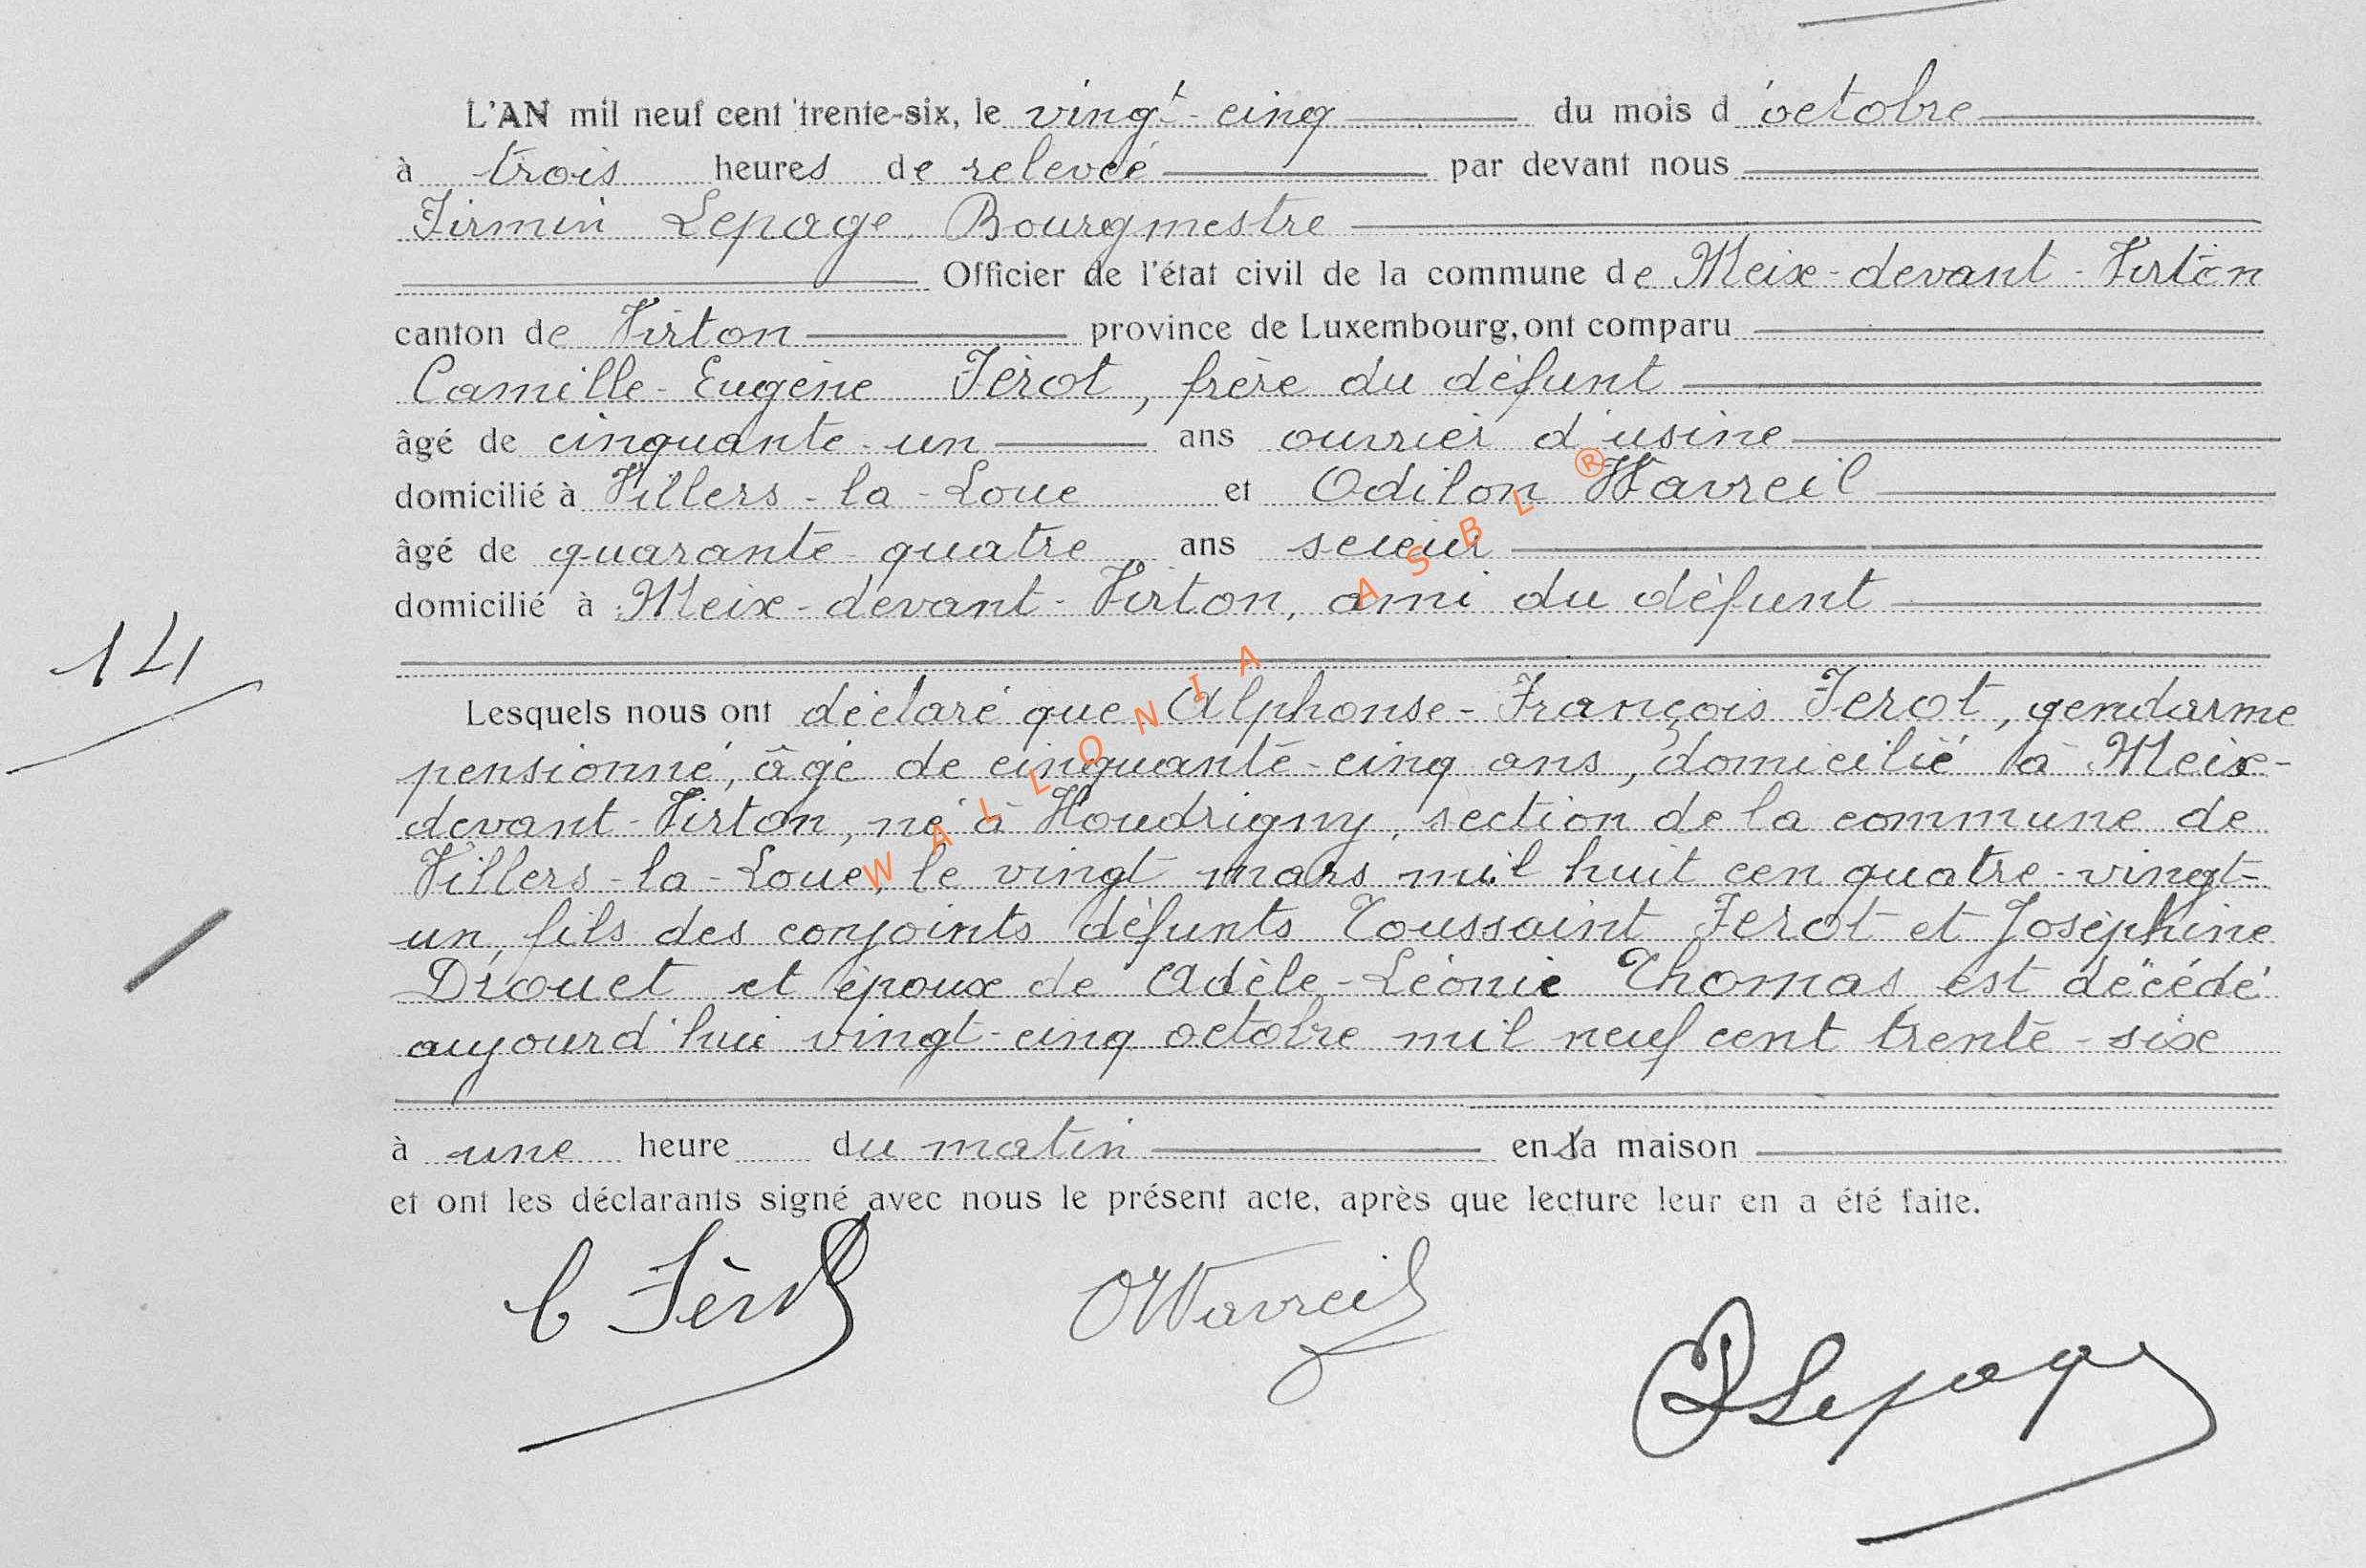 L'AN mil neuf cent trente-six, le vingt-cinq du mois d'octobre
à trois heures de relevée par devant nous
Firmin Lepage, Bourgmestre
Officier de l'état civil de la commune de Meix-devant-Virton
canton de Virton province de Luxembourg, ont comparu
Camille-Eugène Férot, frère du défunt
âgé de cinquante-un ans ouvrier d'usine
domicilié à Villers-la-Loue et Odilon Wavreil
âgé de quarante-quatre ans scieur
domicilié à Meix-devant-Virton, ami du défunt
14
Lesquels nous ont déclaré que Alphonse-François Ferot, gendarme
pensionné, âgé de cinquante-cinq ans, domicilié à Meix-
devant-Virton, né à Houdrigny, section de la commune de
Villers-la-Loue, le vingt mars mil huit cen quatre-vingt-
un, fils des conjoints défunts Toussaint Ferot et Joséphine
Drouet et époux de Adèle-Léonie Thomas est décédé
aujourd'hui vingt-cinq octobre mil neuf cent trente-six
à une heure du matin en sa maison
et ont les déclarants signé avec nous le présent acte, après que lecture leur en a été faite.
C Férot OWavreil
F Lepage
WALLONIA ASBL ®